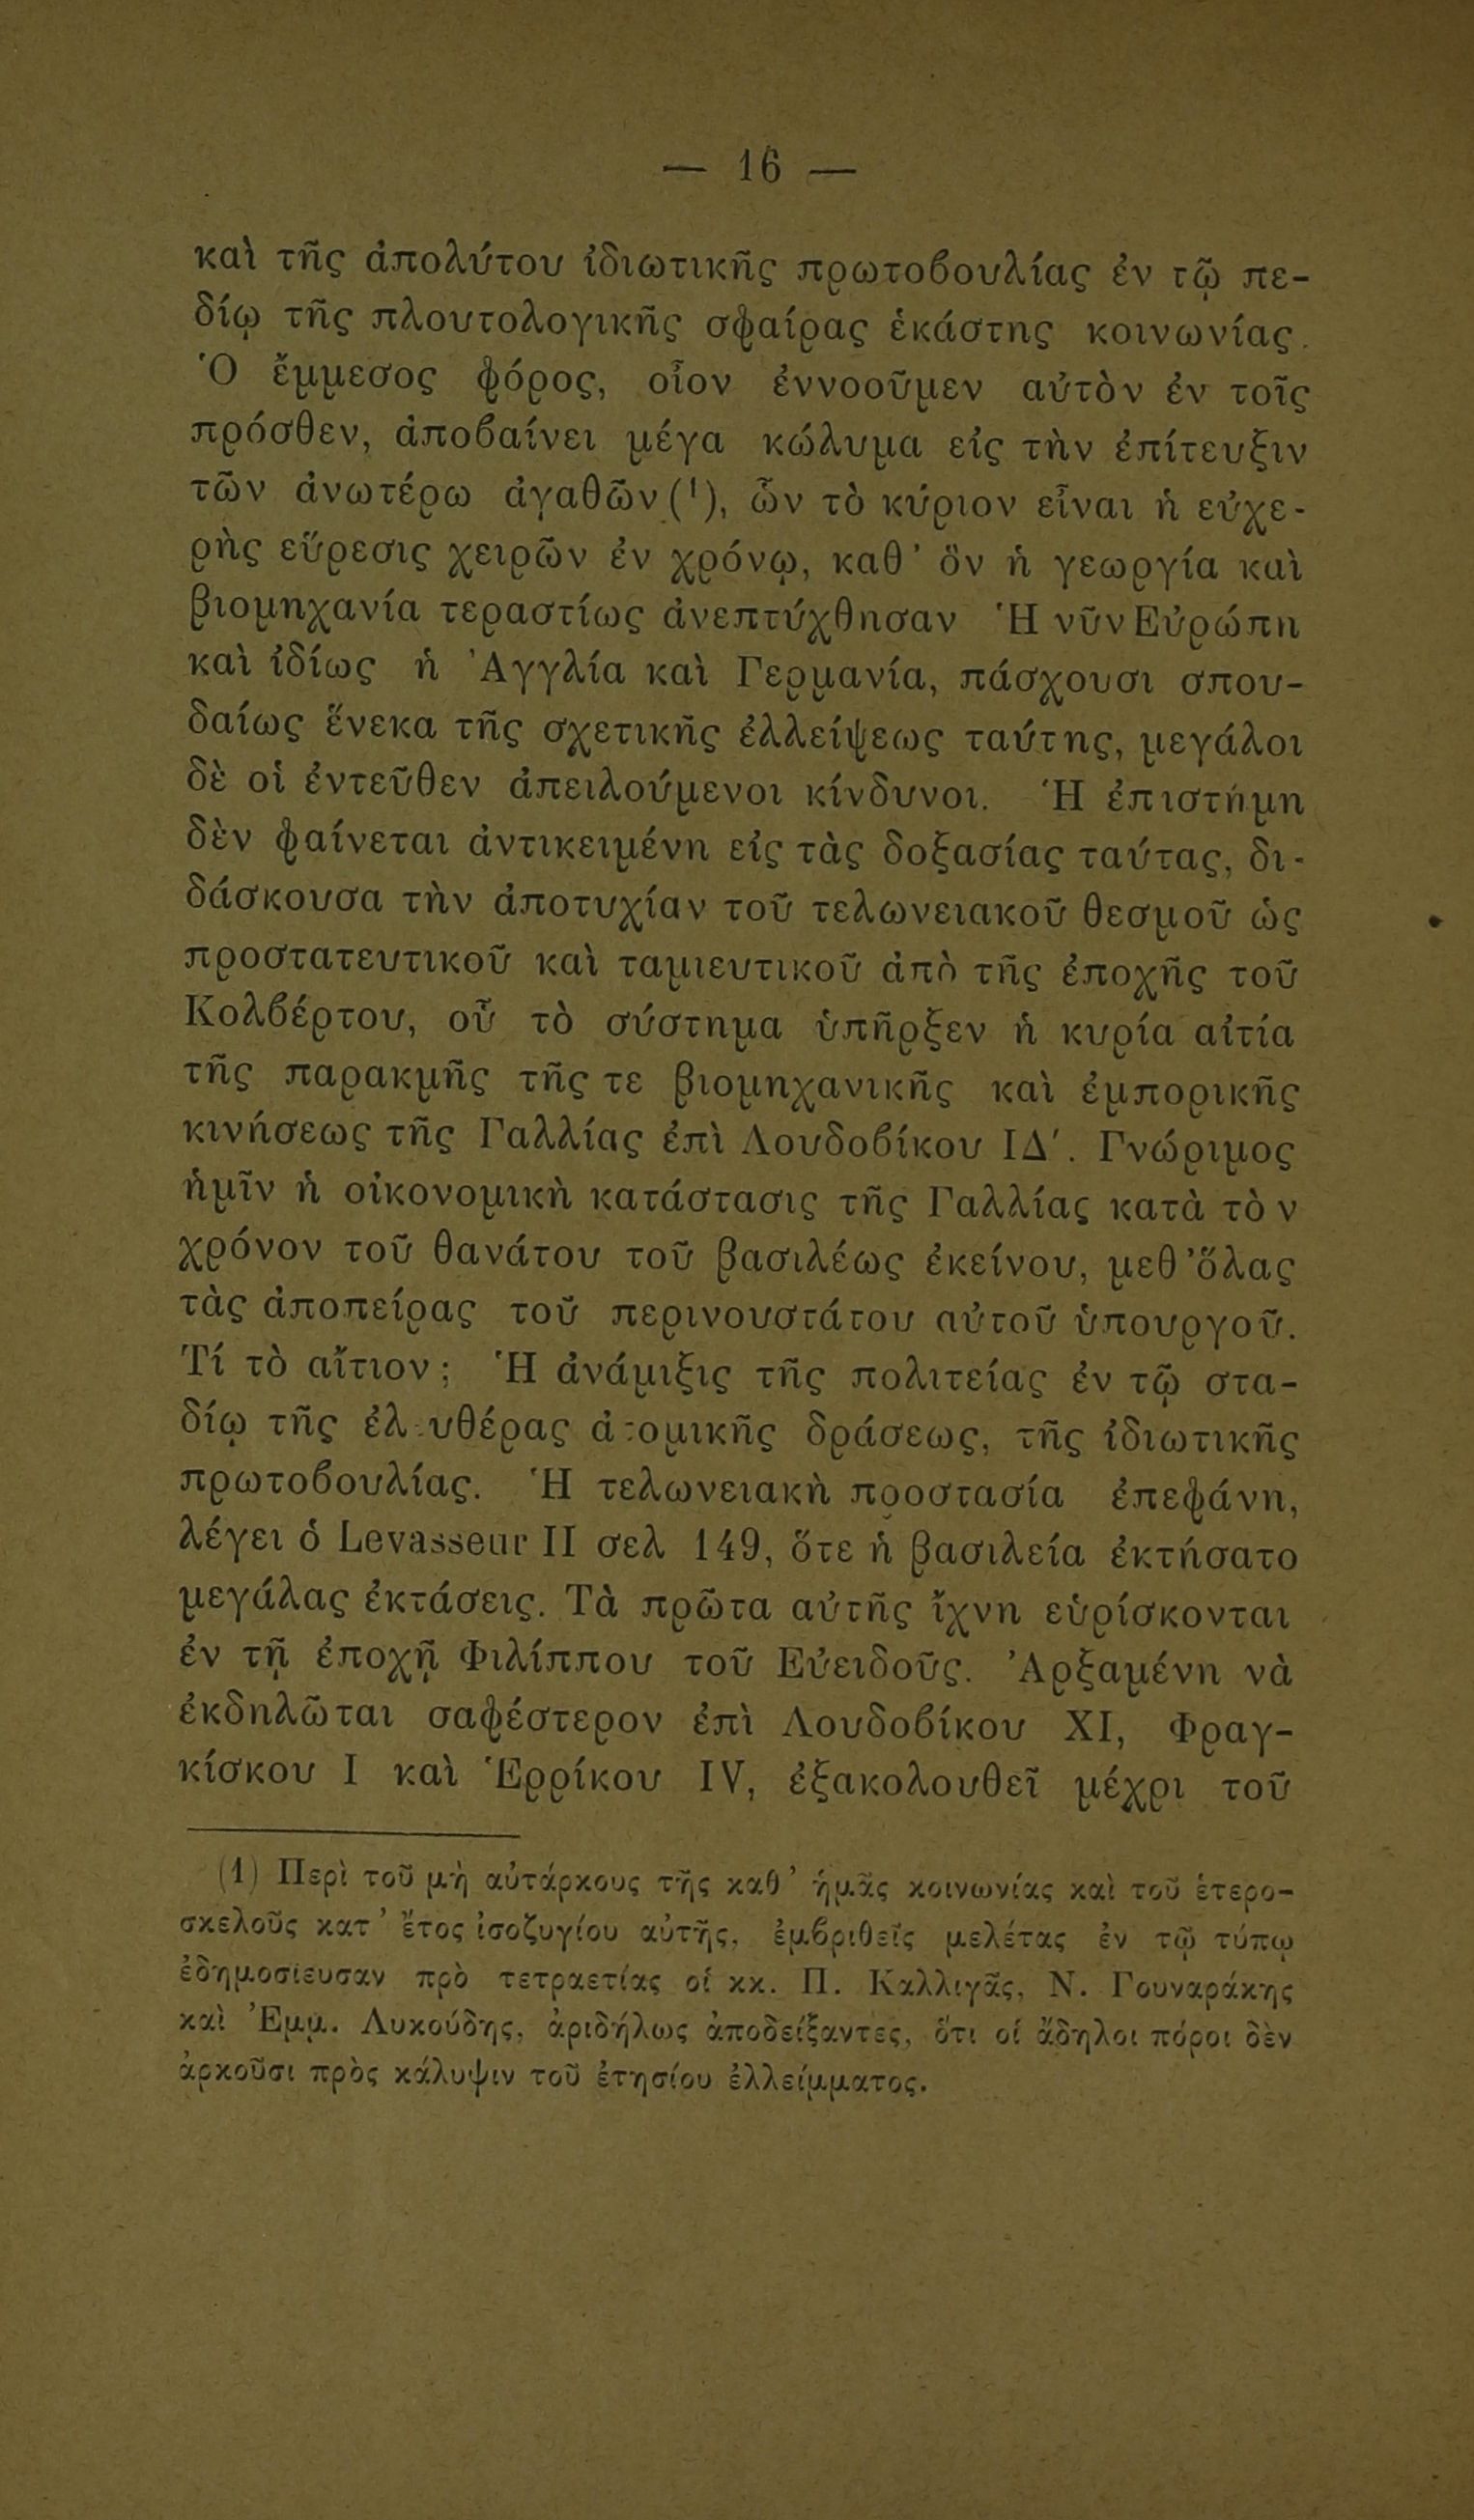 — 16 —
καὶ τῆς ἀπολύτου ἰδιωτικῆς πρωτοβουλίας ἐν τῷ πε-
δίῳ τῆς πλουτολογικῆς σφαίρας ἑκάστης κοινωνίας.
Ὁ ἔμμεσος φόρος, οἷον ἐννοοῦμεν αὐτὸν ἐν τοῖς
πρόσθεν, ἀποβαίνει μέγα κώλυμα εἰς τὴν ἐπίτευξιν
τῶν ἀνωτέρω ἀγαθῶν (¹), ὧν τὸ κύριον εἶναι ἡ εὐχε-
ρὴς εὕρεσις χειρῶν ἐν χρόνῳ, καθ’ ὃν ἡ γεωργία καὶ
βιομηχανία τεραστίως ἀνεπτύχθησαν Ἡ νῦν Εὐρώπη
καὶ ἰδίως ἡ Ἀγγλία καὶ Γερμανία, πάσχουσι σπου-
δαίως ἕνεκα τῆς σχετικῆς ἐλλείψεως ταύτης, μεγάλοι
δὲ οἱ ἐντεῦθεν ἀπειλούμενοι κίνδυνοι. Ἡ ἐπιστήμη
δὲν φαίνεται ἀντικειμένη εἰς τὰς δοξασίας ταύτας, δι-
δάσκουσα τὴν ἀποτυχίαν τοῦ τελωνειακοῦ θεσμοῦ ὡς
προστατευτικοῦ καὶ ταμιευτικοῦ ἀπὸ τῆς ἐποχῆς τοῦ
Κολβέρτου, οὗ τὸ σύστημα ὑπῆρξεν ἡ κυρία αἰτία
τῆς παρακμῆς τῆς τε βιομηχανικῆς καὶ ἐμπορικῆς
κινήσεως τῆς Γαλλίας ἐπὶ Λουδοβίκου ΙΔ′. Γνώριμος
ἡμῖν ἡ οἰκονομικὴ κατάστασις τῆς Γαλλίας κατὰ τὸν
χρόνον τοῦ θανάτου τοῦ βασιλέως ἐκείνου, μεθ’ ὅλας
τὰς ἀποπείρας τοῦ περινουστάτου αὐτοῦ ὑπουργοῦ.
Τί τὸ αἴτιον; Ἡ ἀνάμιξις τῆς πολιτείας ἐν τῷ στα-
δίῳ τῆς ἐλευθέρας ἀτομικῆς δράσεως, τῆς ἰδιωτικῆς
πρωτοβουλίας. Ἡ τελωνειακὴ προστασία ἐπεφάνη,
λέγει ὁ Levasseur II σελ 149, ὅτε ἡ βασιλεία ἐκτήσατο
μεγάλας ἐκτάσεις. Τὰ πρῶτα αὐτῆς ἴχνη εὑρίσκονται
ἐν τῇ ἐποχῇ Φιλίππου τοῦ Εὐειδοῦς. Ἀρξαμένη νὰ
ἐκδηλῶται σαφέστερον ἐπὶ Λουδοβίκου XI, Φραγ-
κίσκου I καὶ Ἑρρίκου IV, ἐξακολουθεῖ μέχρι τοῦ
(1) Περὶ τοῦ μὴ αὐτάρκους τῆς καθ’ ἡμᾶς κοινωνίας καὶ τοῦ ἑτερο-
σκελοῦς κατ’ ἔτος ἰσοζυγίου αὐτῆς, ἐμβριθεῖς μελέτας ἐν τῷ τύπῳ
ἐδημοσίευσαν πρὸ τετραετίας οἱ κκ. Π. Καλλιγᾶς, Ν. Γουναράκης
καὶ Ἐμμ. Λυκούδης, ἀριδήλως ἀποδείξαντες, ὅτι οἱ ἄδηλοι πόροι δὲν
ἀρκοῦσι πρὸς κάλυψιν τοῦ ἐτησίου ἐλλείμματος.